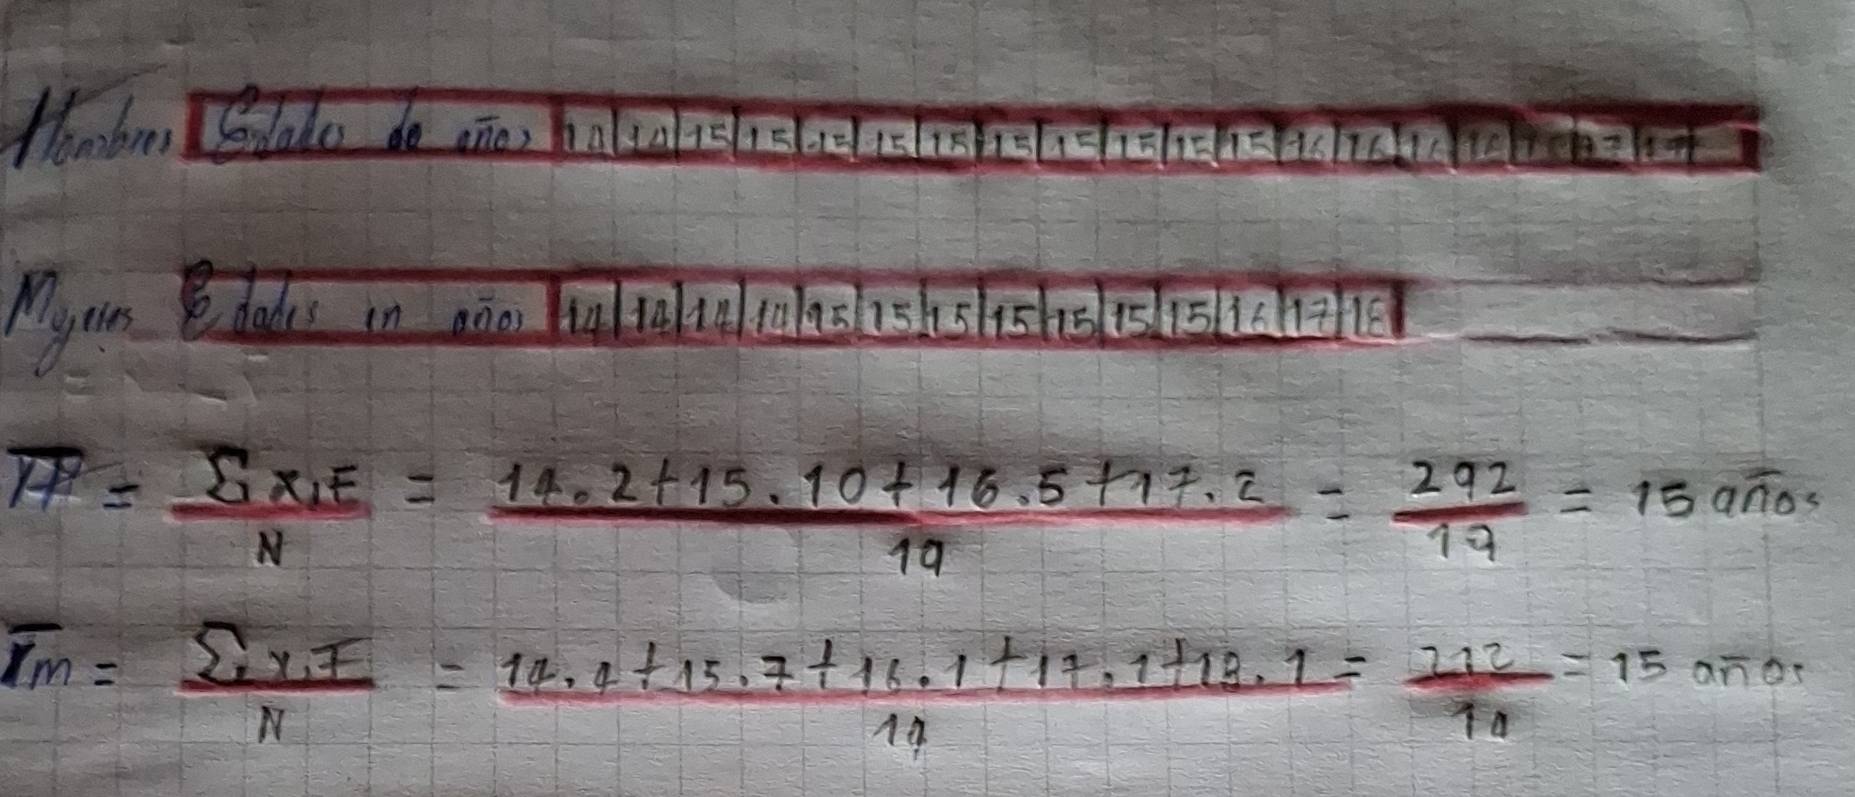 Hombres Edades de años 14 14 15 15 15 15 15 15 15 15 15 15 16 16 16 16 17 17
Mujeres Edades en años 14 14 14 14 15 15 15 15 15 15 15 16 17 18
= Σ x.F / N = 14.2+15.10+16.5+17.2 / 19 = 292 / 19 = 15 años
m = Σ x.F / N = 14.4+15.7+16.1+17.1+18.1 / 14 = 212 / 14 = 15 años